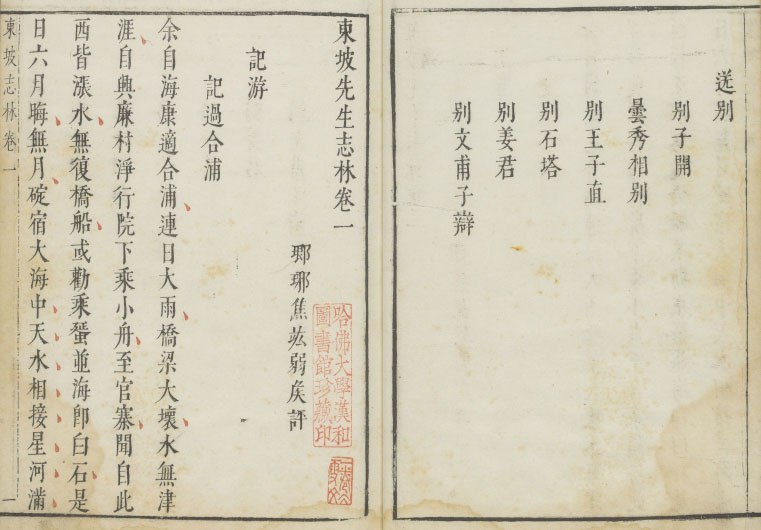 送别
别子開
曇秀相别
别王子直
别石塔
别姜君
别文甫子辯
東坡先生志林卷一
瑯琊焦竑弱矦評
哈佛大學漢和
圖書館珍藏印
記游
記過合浦
余自海康適合浦連日大雨橋梁大壞水無津
涯自興廉村淨行院下乘小舟至官寨聞自此
西皆漲水無復橋船或勸乘蜑並海卽白石是
日六月晦無月碇宿大海中天水相接星河滿
東坡志林卷一
一